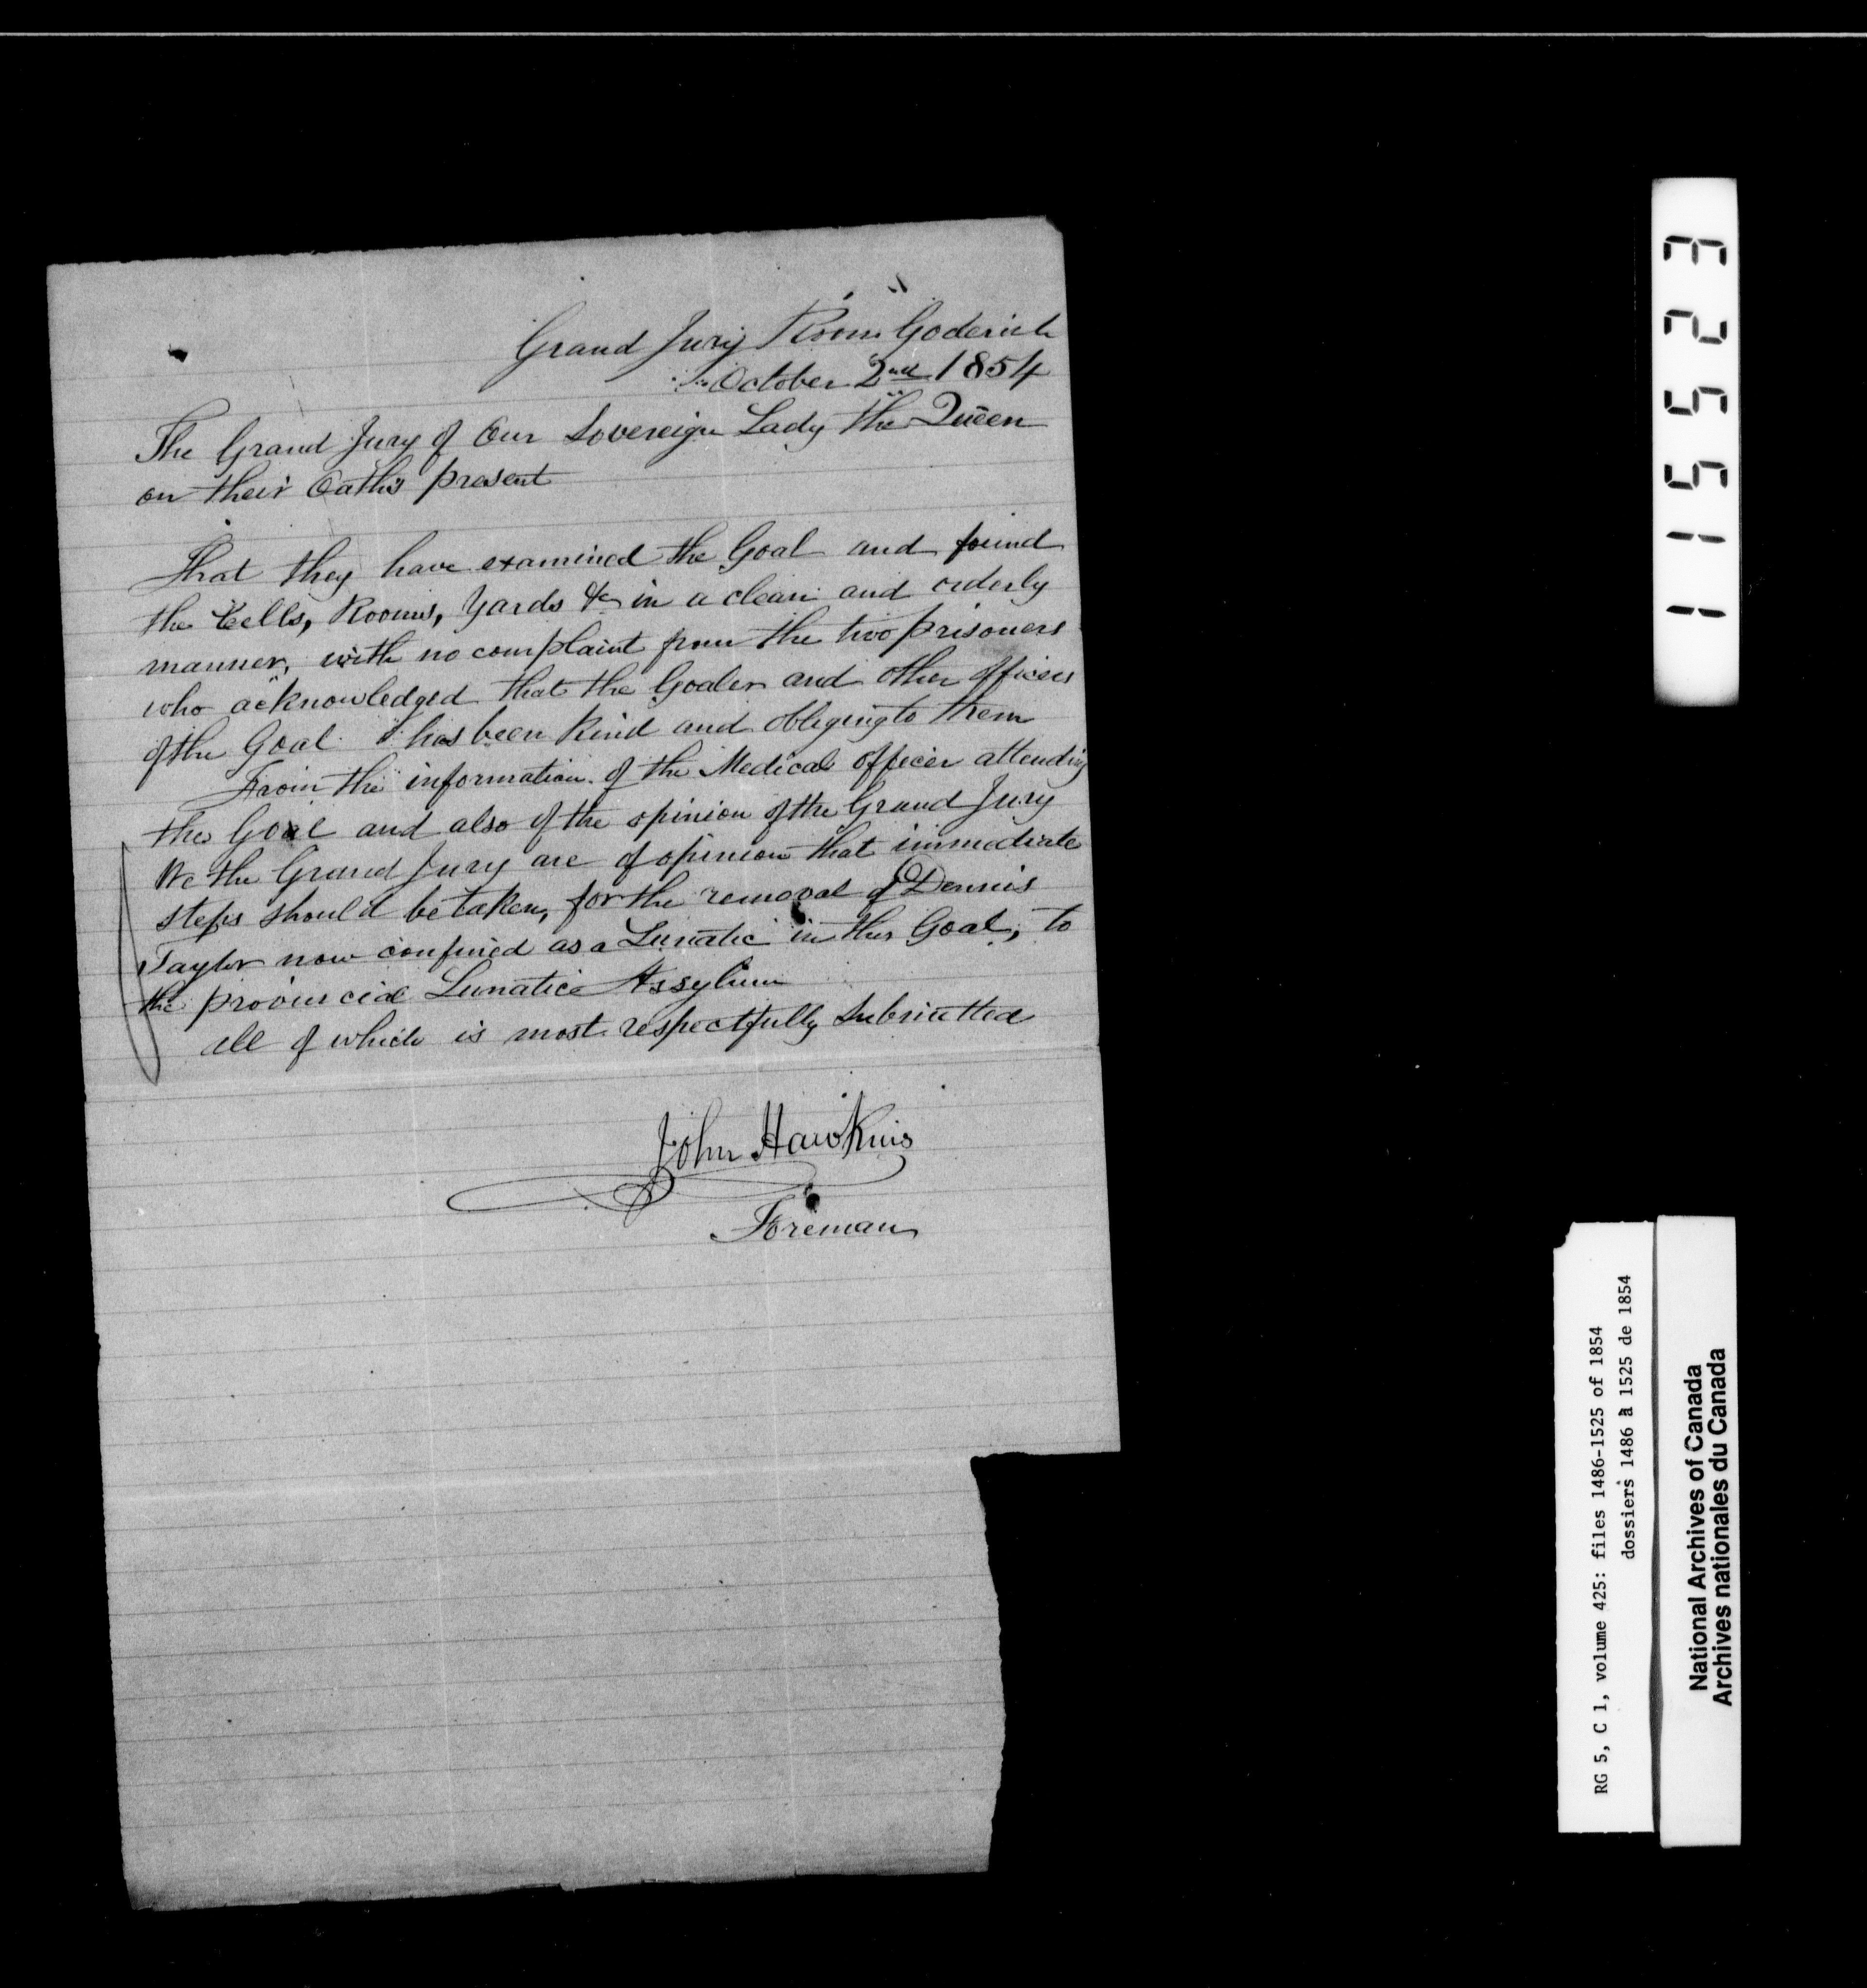 Grand Jury Room Goderich
October 2nd 1854
The Grand Jury of Our Sovereign Lady the Queen
on their Oaths present
That they have examined the Goal and found
the Cells, Rooms, Yards &c in a clean and orderly
manner, with no complaint from the two prisoners
who acknowledged that the Goaler and other officers
of the Goal has been kind and obliging to them
From the information of the Medical officer attending
the Goal and also of the opinion of the Grand Jury
We the Grand Jury are of opinion that immediate
steps should be taken, for the removal of Dennis
Taylor now confined as a Lunatic in this Goal, to
the provincial Lunatic Assylum
all of which is most respectfully submitted
John Hawkins
Foreman
115523
RG 5, C 1, volume 425: files 1486-1525 of 1854
dossiers 1486 à 1525 de 1854
National Archives of Canada
Archives nationales du Canada